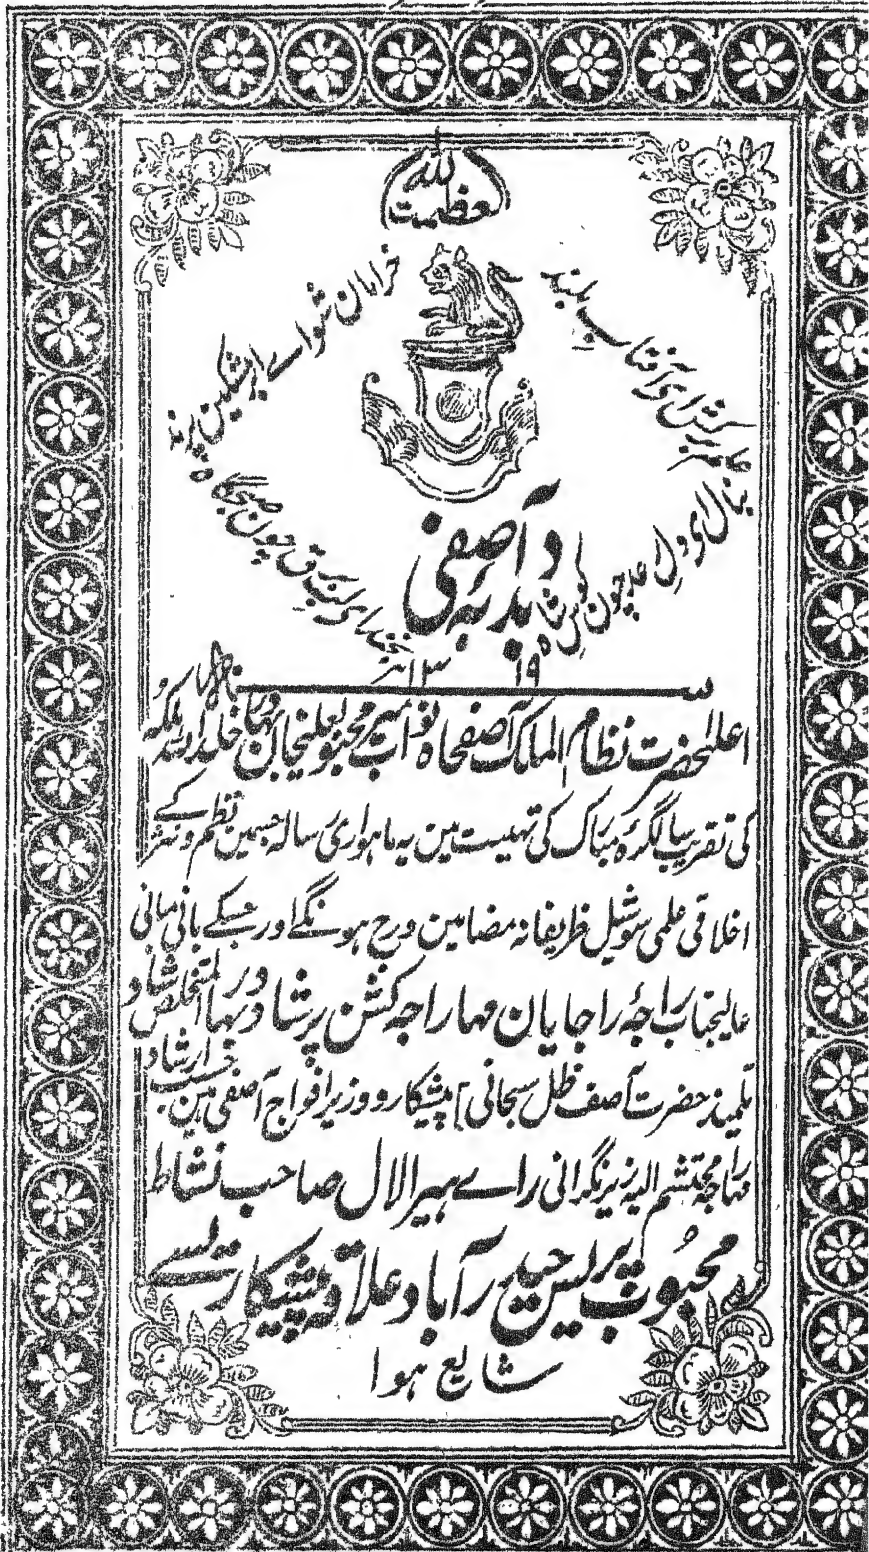 العظمت للہ
علم برکش ای آفتاب بلند
خرامان شو اے ابر مشکین پرند
بنال ای دل رعد چون کوس شاہ
بخند ای لب برق چون صبحگاہ
دبدبہ آصفی
اعلیٰحضرت نظام الملک آصفجاہ نواب میر محبوبعلیخان بہادر خلد اللہ ملکہ
کی تقریب سالگرہ مبارک کی تہنیت مین یہ ماہواری رسالہ جسمین نظم و نثر کے
اخلاقی علمی سوشیل ظریفانہ مضامین درج ہونگے اور جسکے بانی مبانی
عالیجناب راجۂ راجایان مہاراجہ کشن پرشاد بہادر المتخلص شاد
تلمیذ حضرت آصف ظل سبحانی] پیشکار و وزیر افواج آصفی ہین۔ حسب ارشاد
مہاراجہ محتشم الیہ زیر نگرانی راے ہیرالال صاحب نشاط
محبوب پریس حیدرآباد علاقہ پیشکاری سے
شایع ہوا